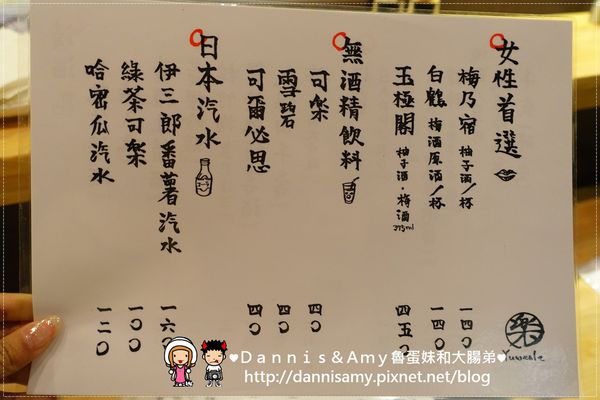 女性首選
梅乃宿 柚子酒/杯 一四〇
白鶴 梅酒原酒/杯 一四〇
玉極閣 柚子酒·梅酒 375ml 四五〇
無酒精飲料
可樂 四〇
雪碧 四〇
可爾必思 四〇
日本汽水
伊三郎番薯汽水 一六〇
綠茶可樂 一〇〇
哈密瓜汽水 一二〇
樂
Dannis&Amy魯蛋妹和大腸弟
http://dannisamy.pixnet.net/blog